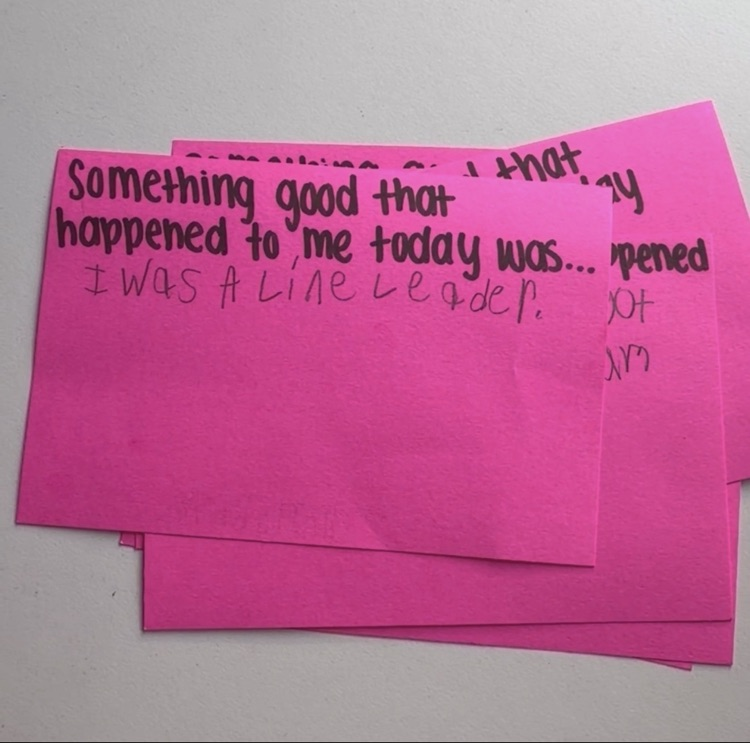 Something good that
happened to me today was...
I was A Line Leader.
good that
pened